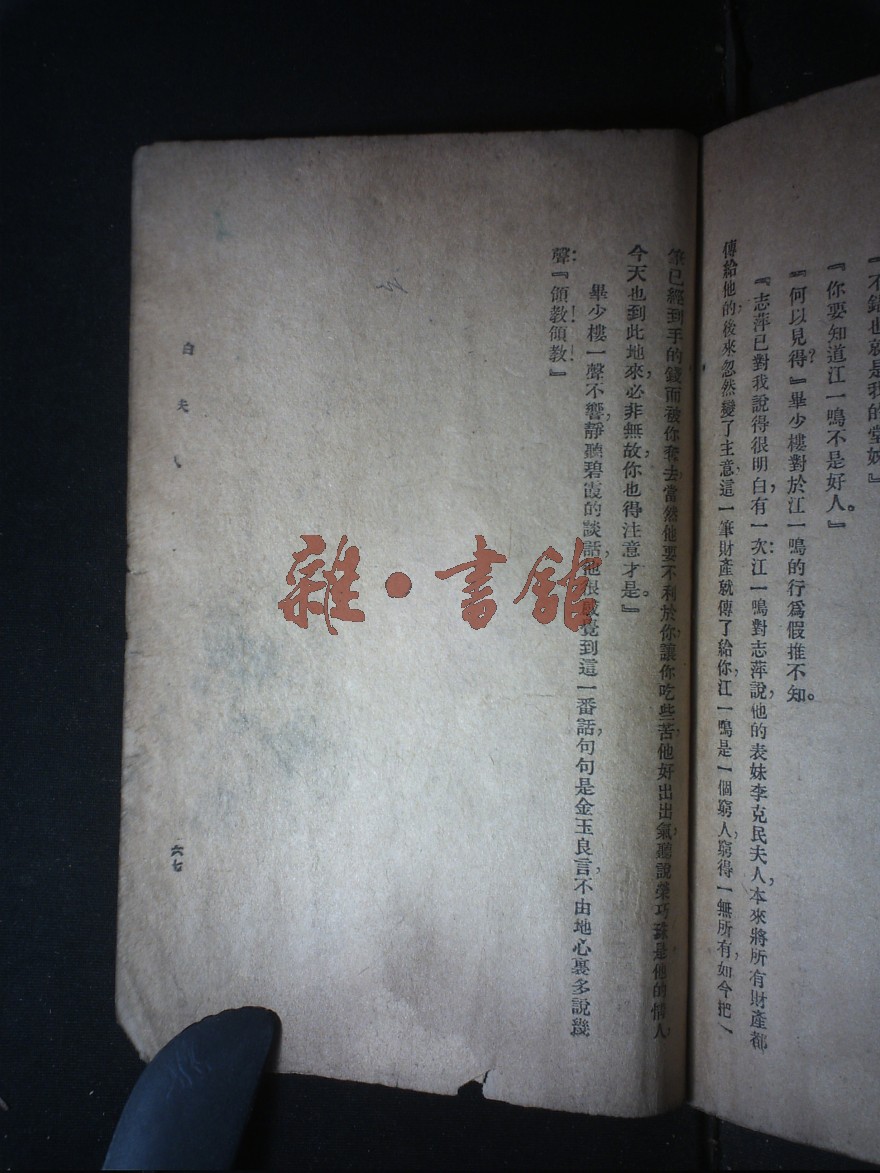 『不錯也就是我的堂姊』
『你要知道江一鳴不是好人。』
『何以見得？』畢少樓對於江一鳴的行爲假推不知。
『志萍已對我說得很明白，有一次：江一鳴對志萍說，他的表妹李克民夫人，本來將所有財產都
傳給他的，後來忽然變了主意，這一筆財產就傳了給你，江一鳴是一個窮人，窮得一無所有，如今把一
筆已經到手的錢而被你奪去，當然他要不利於你，讓你吃些苦，他好出出氣，聽說榮巧珠是他的情人，
今天也到此地來，必非無故，你也得注意才是。』
畢少樓一聲不響，靜聽碧霞的談話，他很感覺到這一番話，句句是金玉良言，不由地心裏多說幾
聲：『領教！領教！』
白夫人
六七
雜·書館